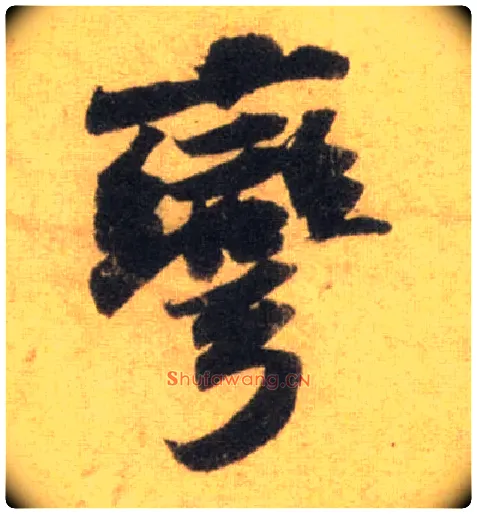 彎
Shufawang.CN